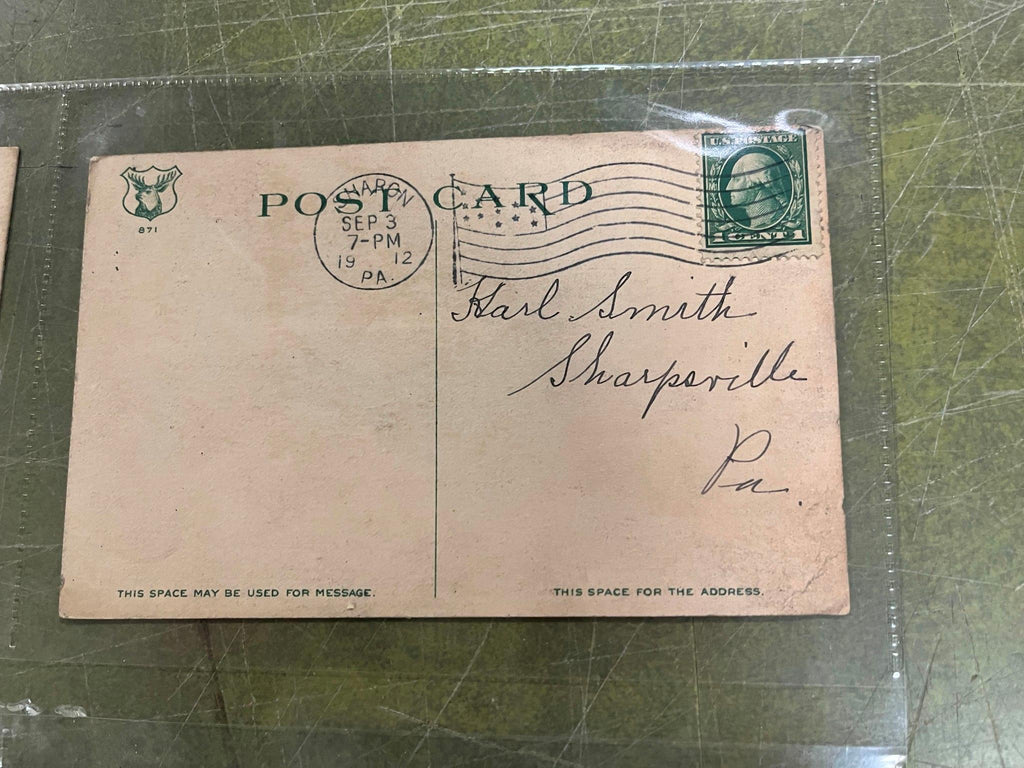 POST CARD
871
SHARON
SEP 3
7-PM
19 12
PA.
U.S. POSTAGE
1 CENT 1
Karl Smith
Sharpsville
Pa.
THIS SPACE MAY BE USED FOR MESSAGE.
THIS SPACE FOR THE ADDRESS.